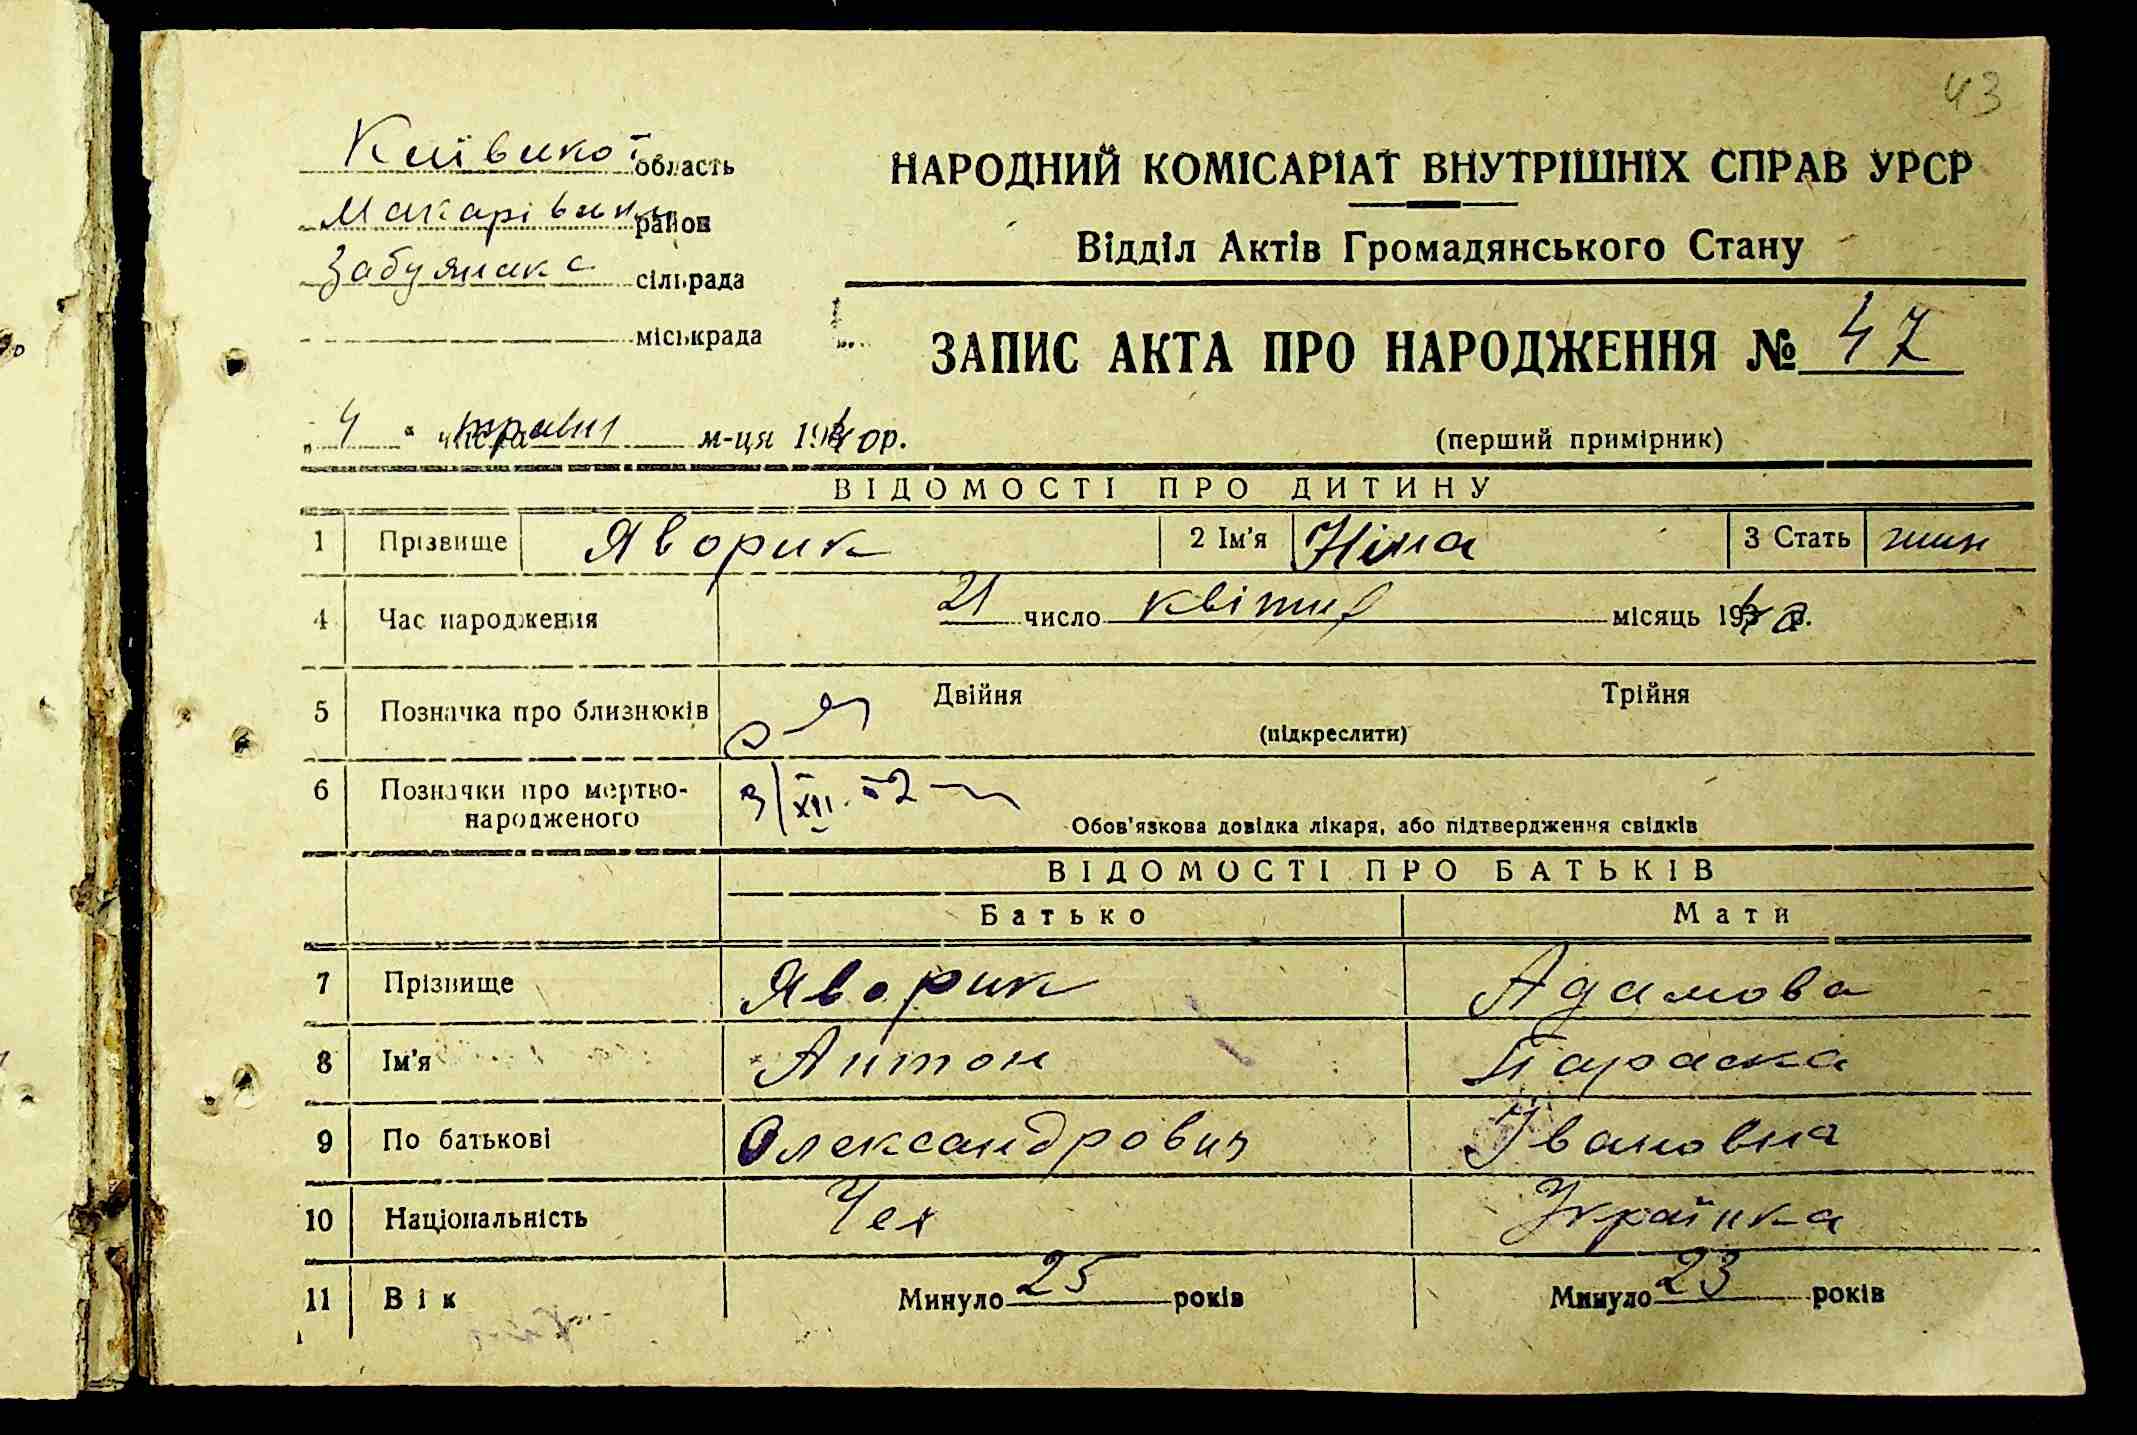 43
Київської область
Макарівський район
Забуянська сільрада
міськрада
НАРОДНИЙ КОМІСАРІАТ ВНУТРІШНІХ СПРАВ УРСР
Відділ Актів Громадянського Стану
ЗАПИС АКТА ПРО НАРОДЖЕННЯ № 47
„ 4 “ числа травня м-ця 1940 р.
(перший примірник)
ВІДОМОСТІ ПРО ДИТИНУ
1 Прізвище Яворик 2 Ім'я Ніна 3 Стать жин
4 Час народження 21 число квітня місяць 1940 р.
5 Позначка про близнюків Двійня Трійня
(підкреслити)
6 Позначки про мертво-
народженого 3/XII 52
Обов'язкова довідка лікаря, або підтвердження свідків
ВІДОМОСТІ ПРО БАТЬКІВ
Батько Мати
7 Прізвище Яворик Адамова
8 Ім'я Антон Параска
9 По батькові Олександрович Івановна
10 Національність Чех Українка
11 Вік Минуло 25 років Минуло 23 років